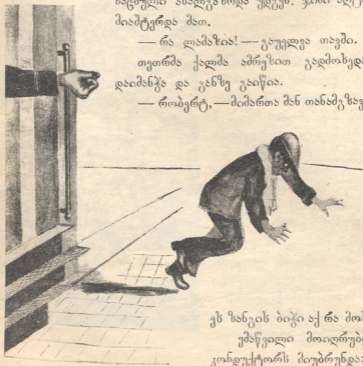 მიაშტერდა მათ.
— რა ლამაზია! — გაუელვა თავში.
თეთრმა ქალმა ამრეზით გადმოხედა
დაიმანჭა და განზე გაიწია.
— რობერტ, — მიმართა მან თანამგზავ
ეს ზანგის ბიჭი აქ რა მოს
უმაწვილი მოიღრუბ
კონდუქტორს მიუბრუნდა